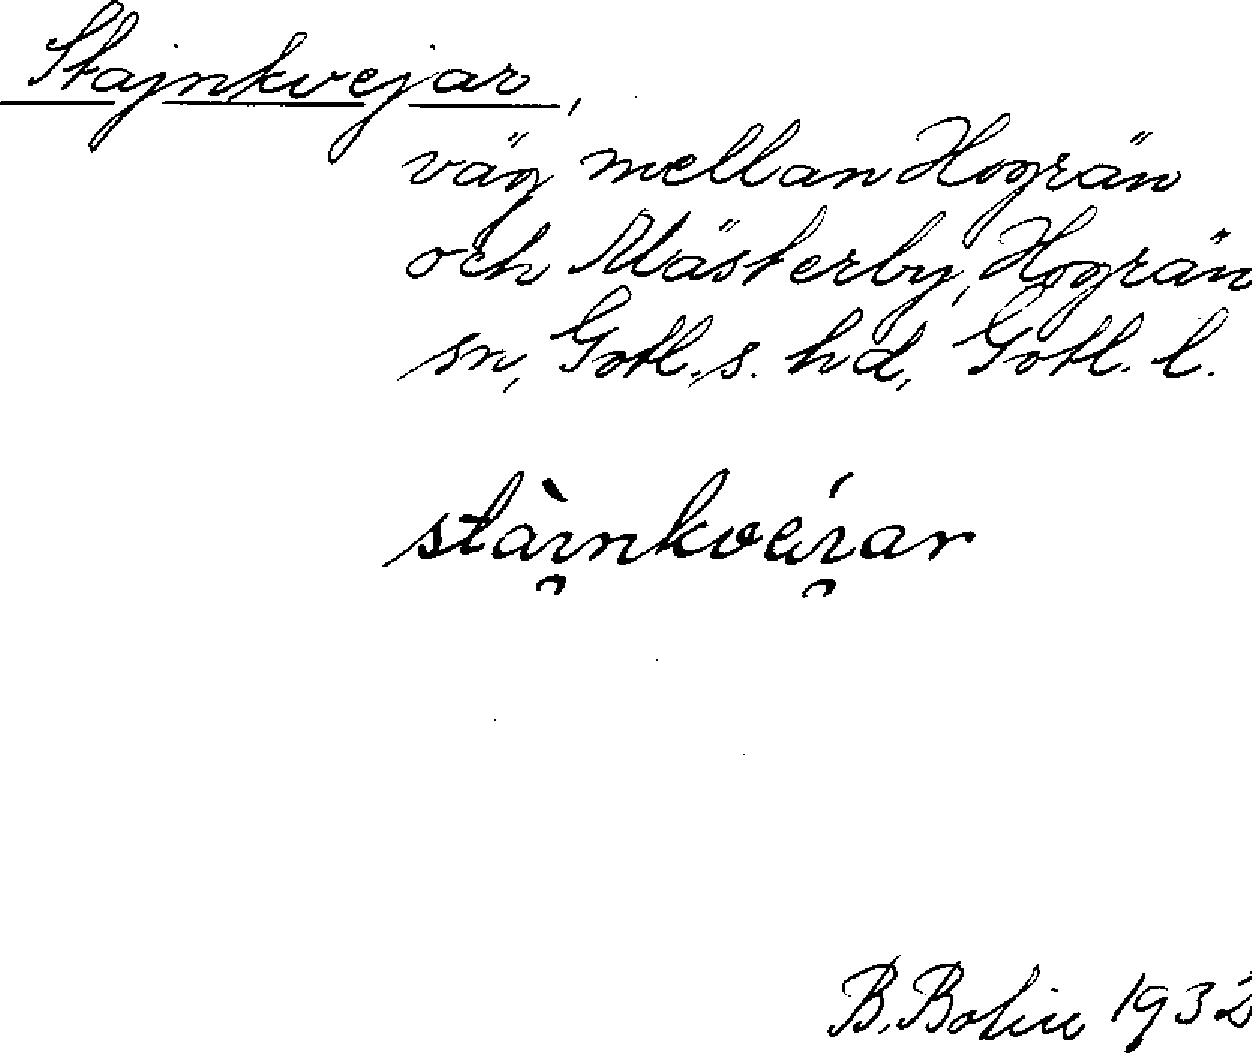 Stajnkvejar,
väg mellan Hogrän
och Mästerby, Hogrän
sn, Gotl. s. hd, Gotl. l.
stàı̯nkveı̯́ar
B. Bolin 1932